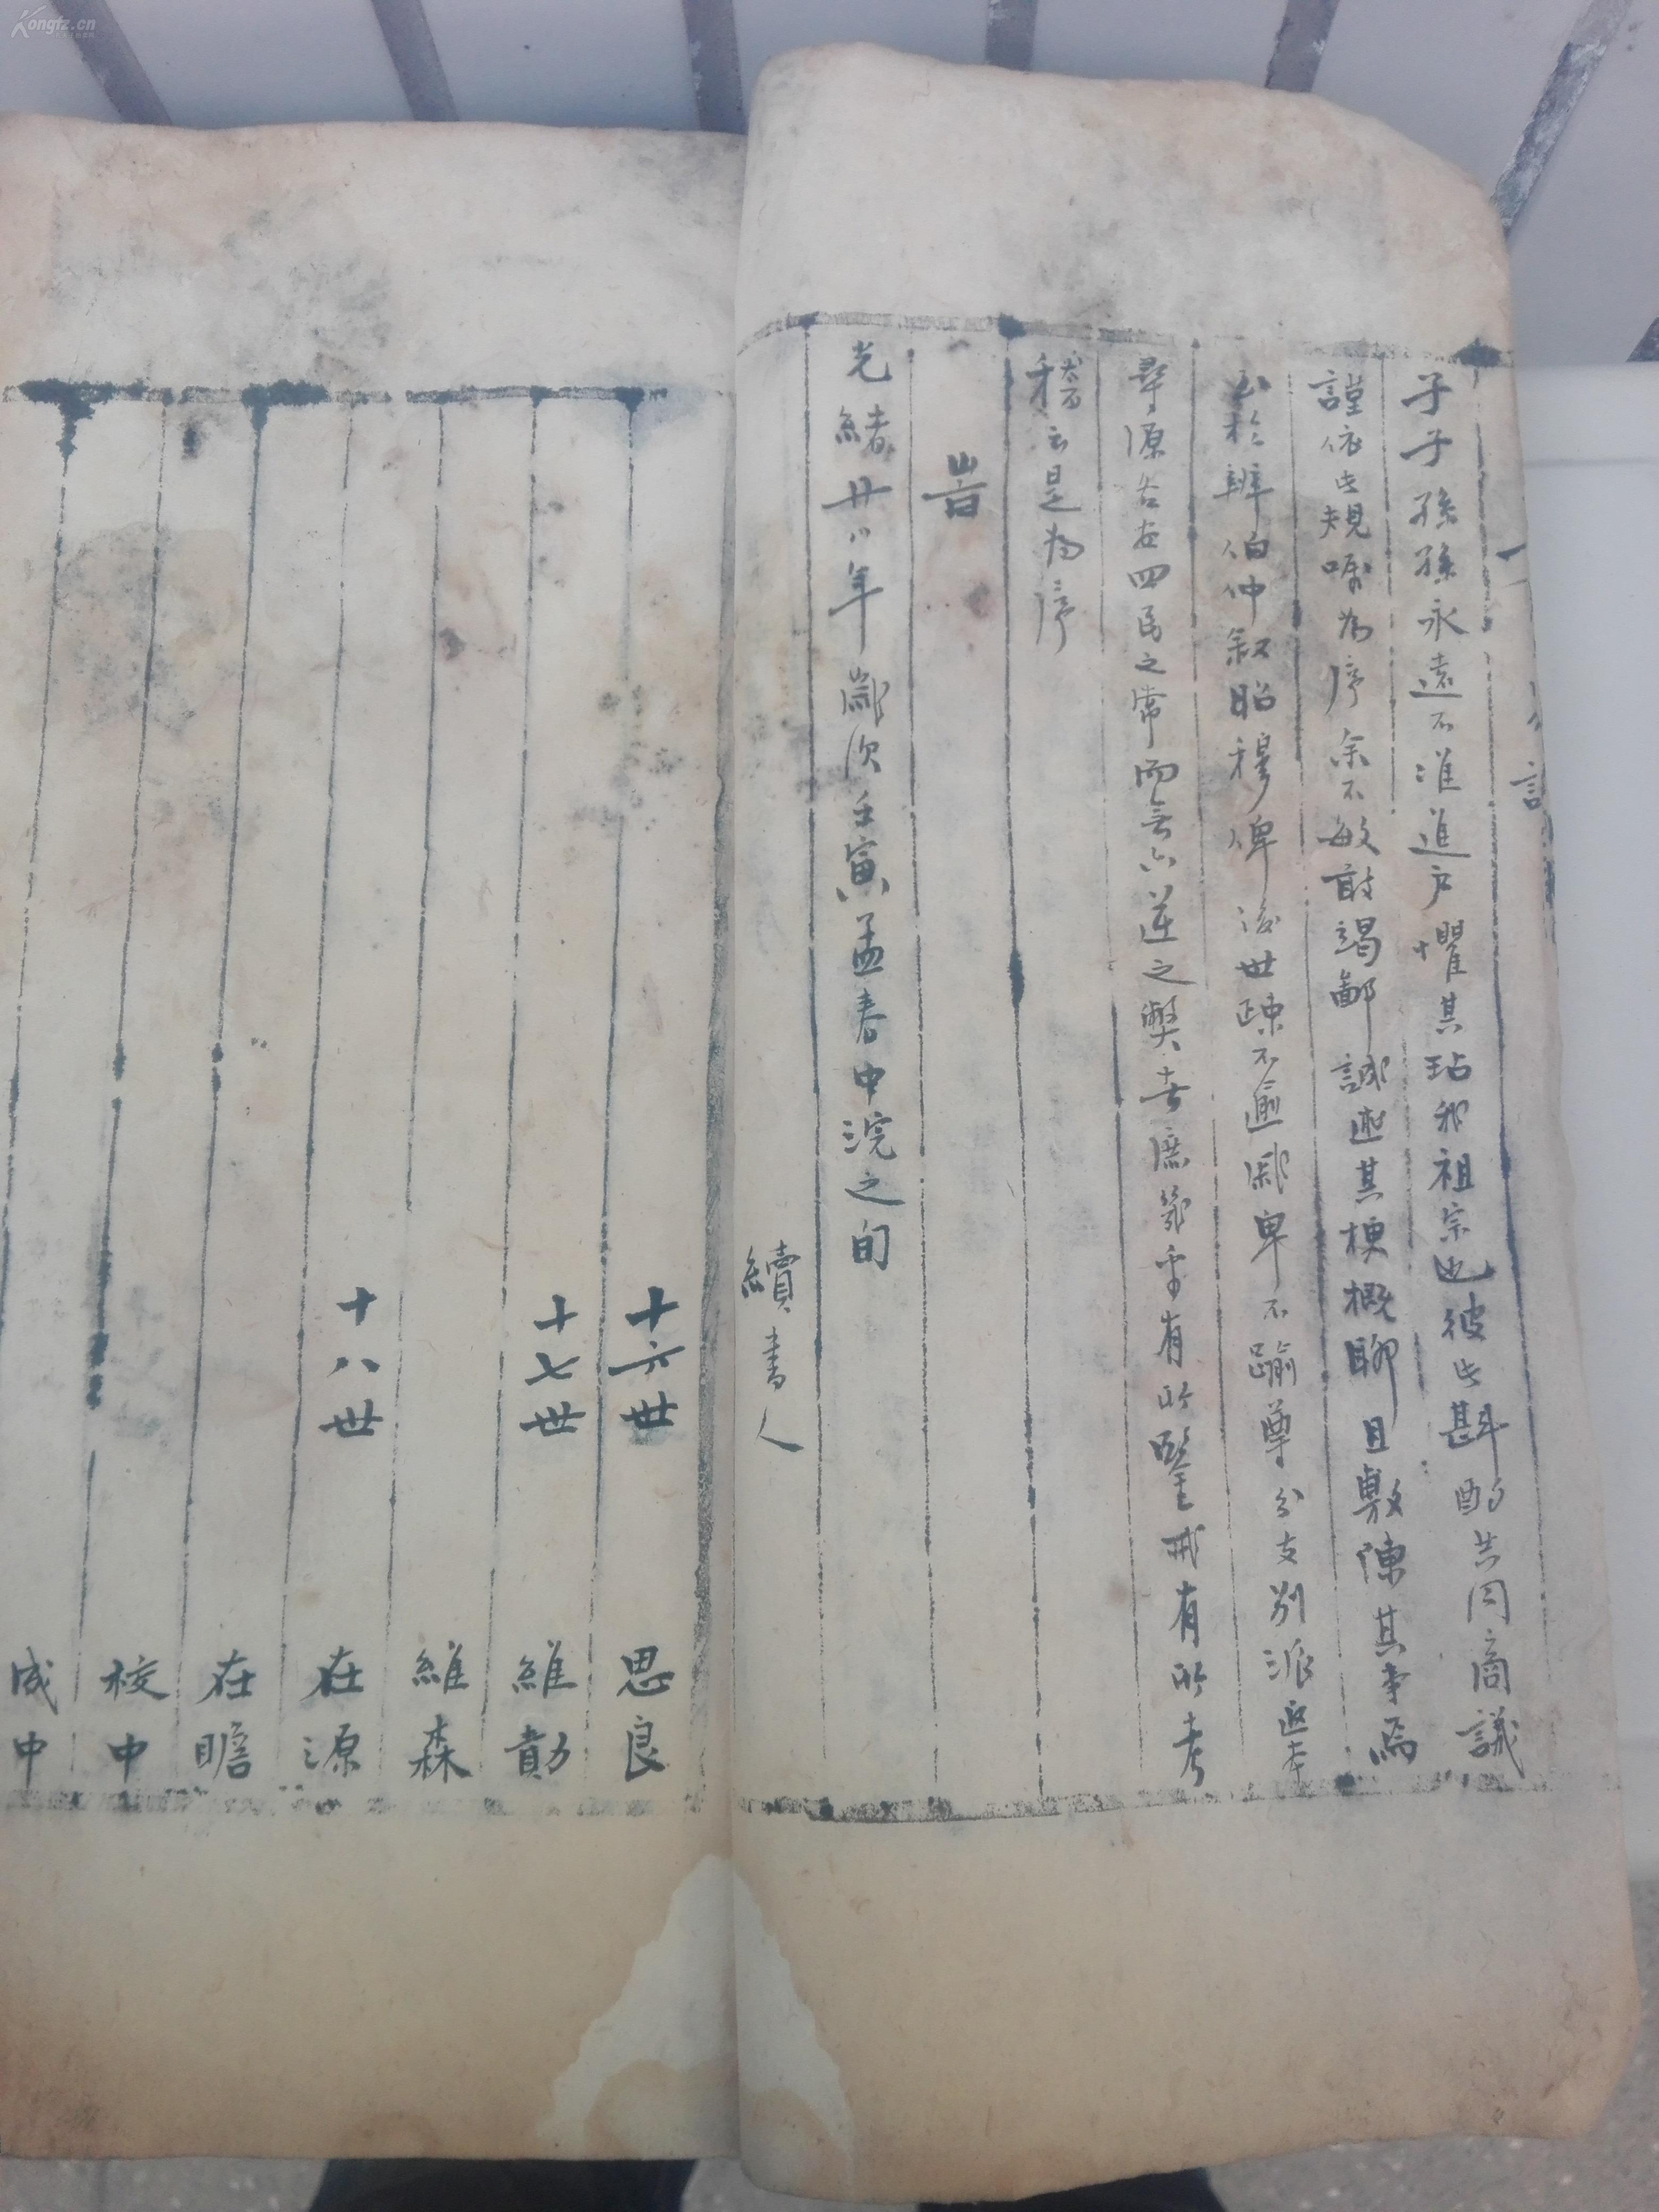 子子孫孫永遠不准進戶懼其玷邪祖宗也彼此斟酌共同商議
謹依此規囑為序余不敏敢竭鄙誠述其梗概聊且敷陳其事焉
至於辨伯仲叙昭穆俾後世疎不逾戚卑不踰尊分支別派返本
尋源名在四民之常而無六逆之獘者庶幾乎有所鑒戒有所考
稽云是為序
旹
光緒廿八年歲次壬寅孟春中浣之旬
續書人
十六世 思良
十七世 維勣
維森
十八世 在源
在瞻
校中
成中
Kongfz.cn